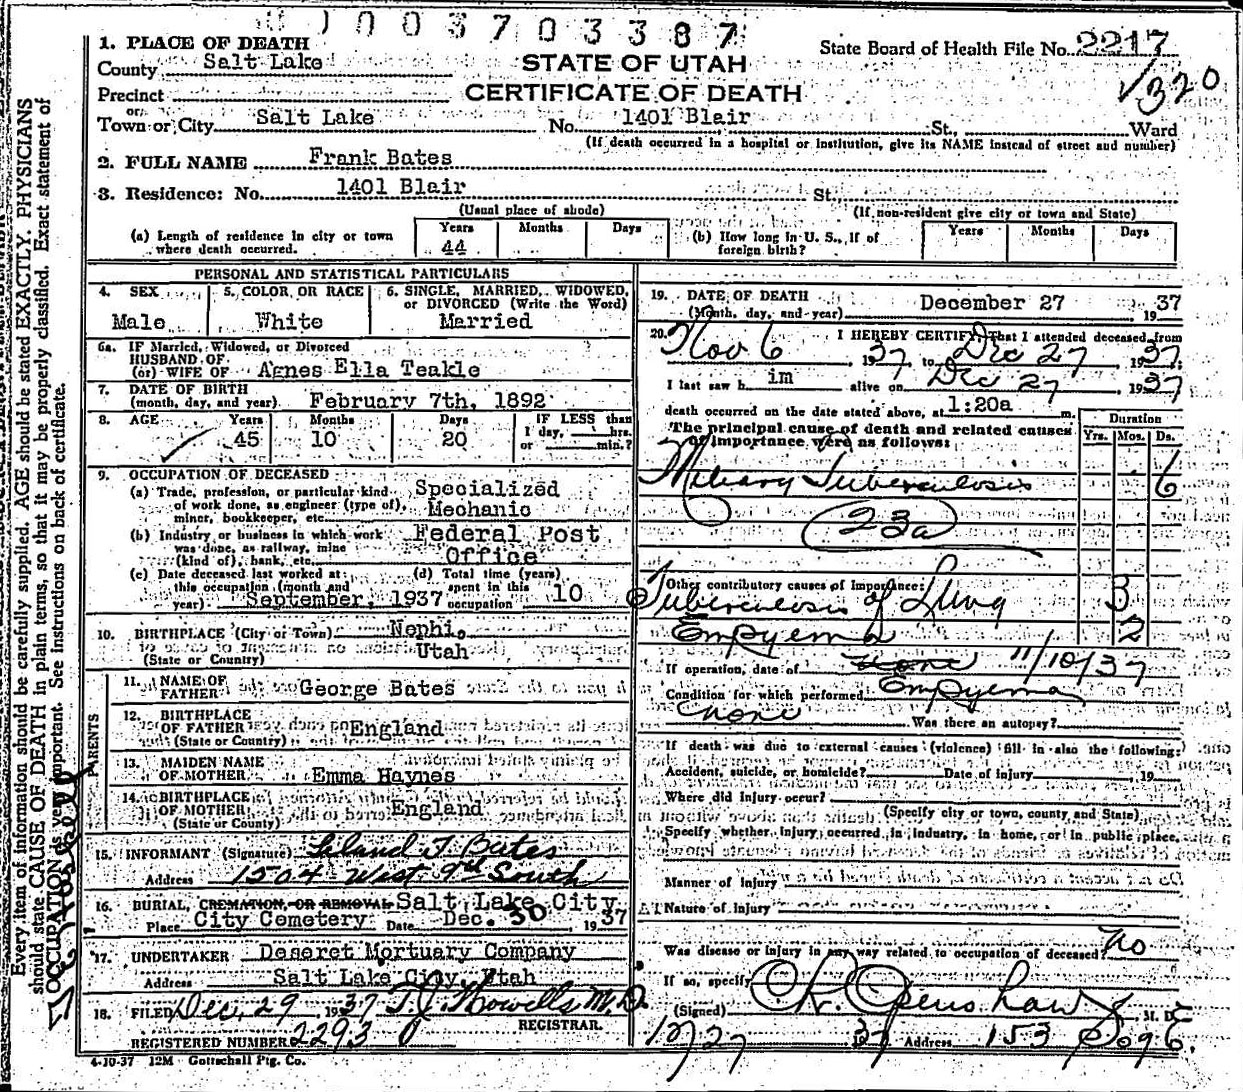 1003703387
1. PLACE OF DEATH
State Board of Health File No. 2217
County Salt Lake
STATE OF UTAH
√320
Precinct
CERTIFICATE OF DEATH
or
Town or City Salt Lake No. 1401 Blair St., Ward
(If death occurred in a hospital or institution, give its NAME instead of street and number)
2. FULL NAME Frank Bates
3. Residence: No. 1401 Blair St.
(Usual place of abode) (If non-resident give city or town and State)
(a) Length of residence in city or town where death occurred. Years 44 Months Days
(b) How long in U. S., if of foreign birth? Years Months Days
PERSONAL AND STATISTICAL PARTICULARS
4. SEX Male
5. COLOR OR RACE White
6. SINGLE, MARRIED, WIDOWED, or DIVORCED (Write the Word) Married
6a. IF Married, Widowed, or Divorced
HUSBAND OF
(or) WIFE OF Agnes Ella Teakle
7. DATE OF BIRTH
(month, day, and year) February 7th, 1892
8. AGE Years 45 Months 10 Days 20 IF LESS than 1 day, hrs. or min.?
9. OCCUPATION OF DECEASED
(a) Trade, profession, or particular kind of work done, as engineer (type of), miner, bookkeeper, etc. Specialized Mechanic
(b) Industry or business in which work was done, as railway, mine (kind of), bank, etc. Federal Post Office
(c) Date deceased last worked at this occupation (month and year) September, 1937
(d) Total time (years) spent in this occupation 10
10. BIRTHPLACE (City or Town) Nephi,
(State or Country) Utah
PARENTS
11. NAME OF FATHER George Bates
12. BIRTHPLACE OF FATHER England
(State or Country)
13. MAIDEN NAME OF MOTHER Emma Haynes
14. BIRTHPLACE OF MOTHER England
(State or Country)
15. INFORMANT (Signature) Leland T. Bates
Address 1504 West 9th South
16. BURIAL, CREMATION, OR REMOVAL Salt Lake City
Place City Cemetery Date Dec. 30, 1937
17. UNDERTAKER Deseret Mortuary Company
Address Salt Lake City, Utah
18. FILED Dec. 29 1937 T.J. Howells M.D.
REGISTRAR.
REGISTERED NUMBER 2293
4-10-37 12M Gottschall Ptg. Co.
19. DATE OF DEATH
(Month, day, and year) December 27 1937
20. I HEREBY CERTIFY, That I attended deceased from
Nov 6 1937 to Dec 27 1937
I last saw him alive on Dec 27 1937
death occurred on the date stated above, at 1:20a m.
The principal cause of death and related causes of importance were as follows:
Duration
Yrs. Mos. Ds.
Miliary Tuberculosis 6
23a
Other contributory causes of importance:
Tuberculosis of Lung 3
Empyema 2
If operation, date of none 11/10/37
Condition for which performed Empyema
none Was there an autopsy?
If death was due to external causes (violence) fill in also the following:
Accident, suicide, or homicide? Date of injury , 19
Where did injury occur?
(Specify city or town, county and State)
Specify whether injury occurred in industry, in home, or in public place.
Manner of injury
Nature of injury
Was disease or injury in any way related to occupation of deceased? no
If so, specify
(Signed) Openshaw, M. D.
12/27 37 Address 153
Every item of information should be carefully supplied. AGE should be stated EXACTLY. PHYSICIANS
should state CAUSE OF DEATH in plain terms, so that it may be properly classified. Exact statement of
OCCUPATION is very important. See instructions on back of certificate.